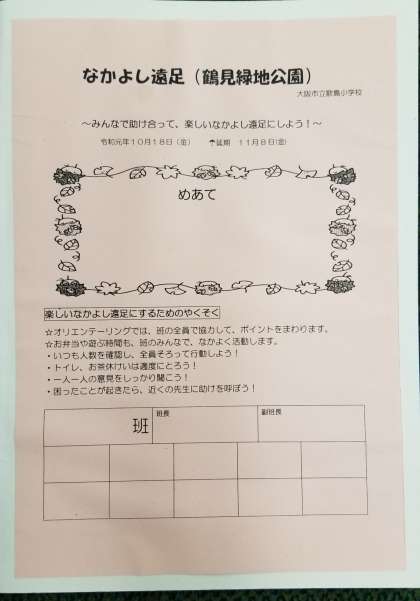 なかよし遠足（鶴見緑地公園）
大阪市立歌島小学校
～みんなで助け合って、楽しいなかよし遠足にしよう！～
令和元年１０月１８日（金） ☂延期 １１月８日(金)
めあて
楽しいなかよし遠足にするためのやくそく
☆オリエンテーリングでは、班の全員で協力して、ポイントをまわります。
☆お弁当や遊ぶ時間も、班のみんなで、なかよく活動します。
・いつも人数を確認し、全員そろって行動しよう！
・トイレ、お茶休けいは適度にとろう！
・一人一人の意見をしっかり聞こう！
・困ったことが起きたら、近くの先生に助けを呼ぼう！
班 班長 副班長